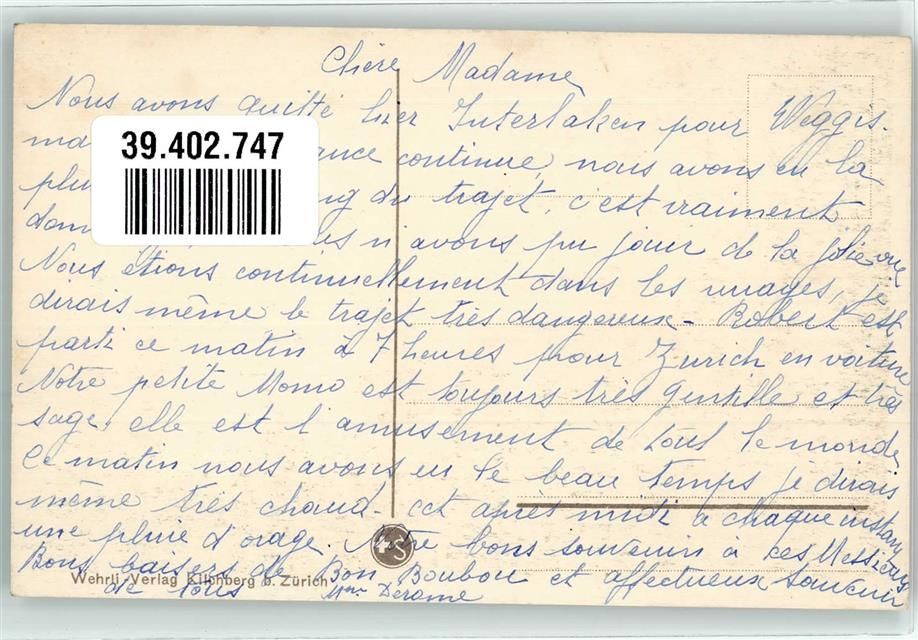 Chère Madame
Nous avons quitté hier Interlaken pour Weggis.
continue, nous avons eu la
du trajet, c'est vraiment
n'avons pu jouir de la jolie vue
Nous étions continuellement dans les nuages, je
dirais même le trajet très dangereux - Robert est
parti ce matin à 7 heures pour Zurich en voiture
Notre petite Momo est toujours très gentille et très
sage, elle est l'amusement de tout le monde
Ce matin nous avons eu le beau temps je dirais
même très chaud - cet après midi à chaque instant
une pluie d'orage. bons souvenirs à ces Messieurs
Bons baisers de Bon Boubou et affectueux souvenir
de tous Mme Derome
39.402.747
Wehrli-Verlag Kilchberg b. Zürich